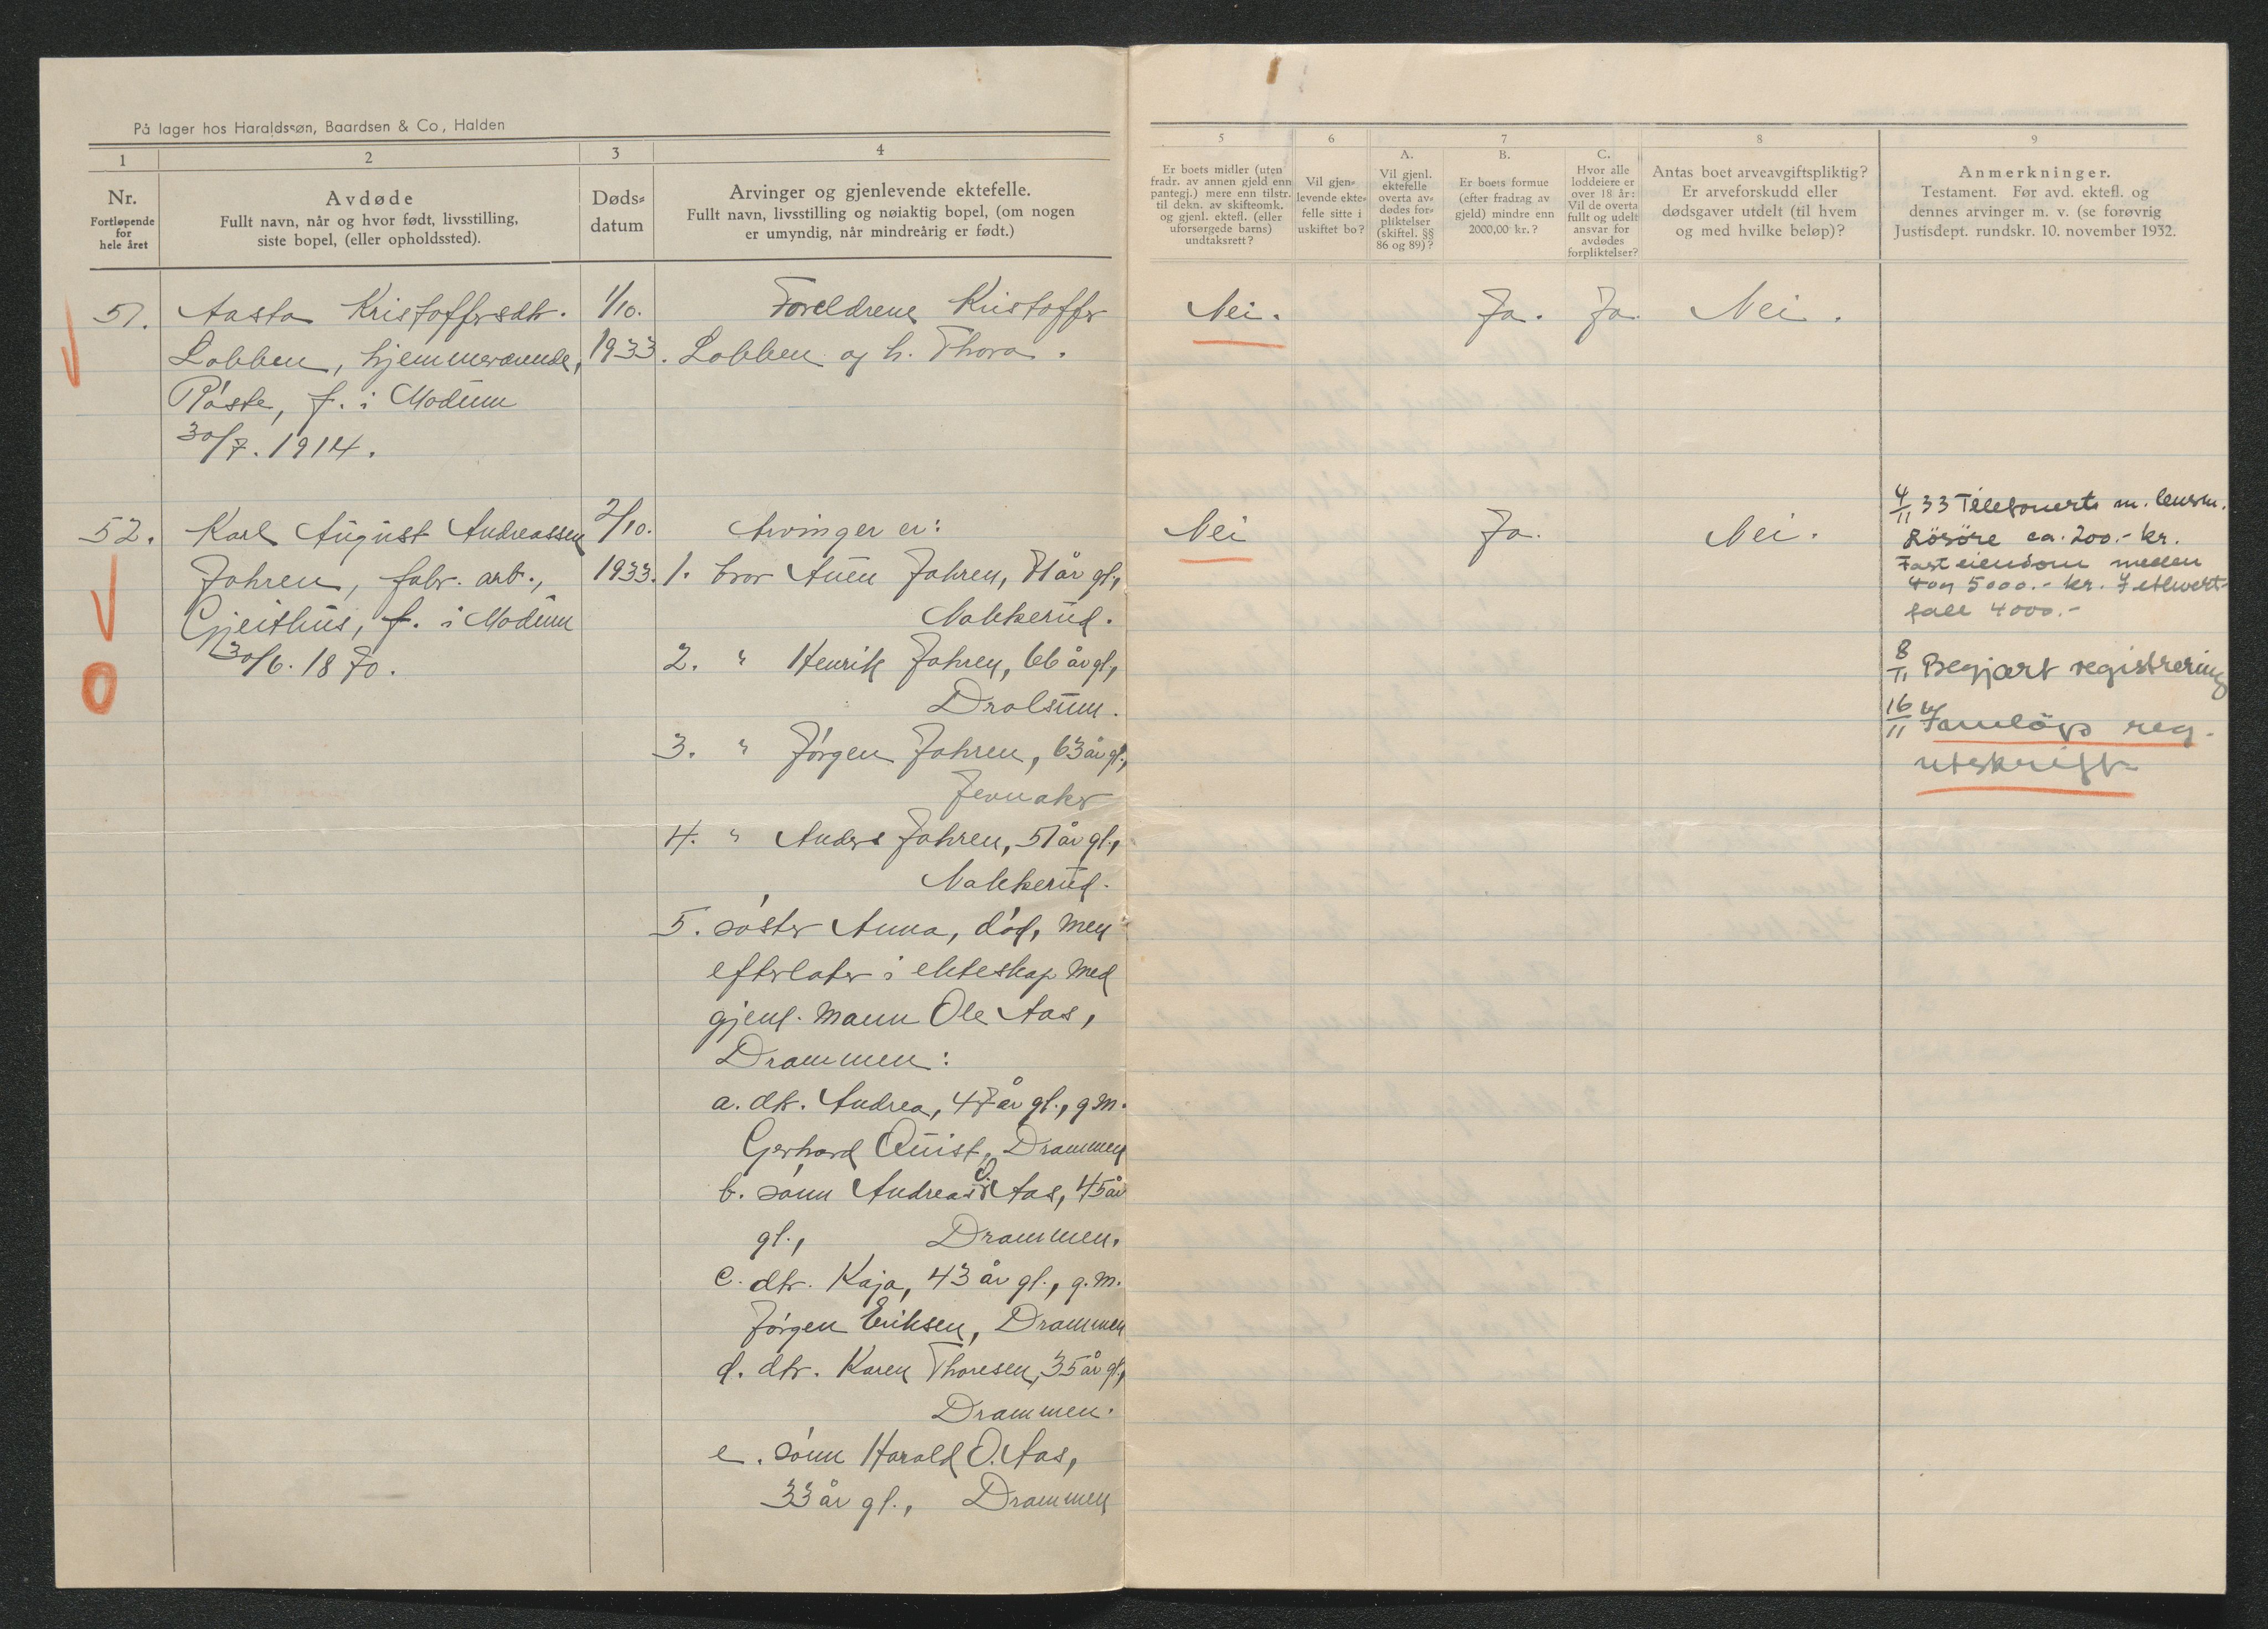 På lager hos Haraldssøn, Baardsen & Co, Halden
1
2
3
4
Nr.
Fortløpende
for
hele året
Avdøde
Fullt navn, når og hvor født, livsstilling,
siste bopel, (eller opholdssted).
Døds-
datum
Arvinger og gjenlevende ektefelle.
Fullt navn, livsstilling og nøiaktig bopel, (om nogen
er umyndig, når mindreårig er født.)
5
6
7
8
9
Er boets midler (uten
fradr. av annen gjeld enn
pantegj.) mere enn tilstr.
til dekn. av skifteomk.
og gjenl. ektefl. (eller
uforsørgede barns)
undtaksrett?
Vil gjen-
levende ekte-
felle sitte i
uskiftet bo?
A.
Vil gjenl.
ektefelle
overta av-
dødes for-
pliktelser
(skiftel. §§
86 og 89)?
B.
Er boets formue
(efter fradrag av
gjeld) mindre enn
2000,00 kr.?
C.
Hvor alle
loddeiere er
over 18 år:
Vil de overta
fullt og udelt
ansvar for
avdødes
forpliktelser?
Antas boet arveavgiftspliktig?
Er arveforskudd eller
dødsgaver utdelt (til hvem
og med hvilke beløp)?
Anmerkninger.
Testament. Før avd. ektefl. og
dennes arvinger m. v. (se forøvrig
Justisdept. rundskr. 10. november 1932.
51. Aasta Kristoffersdtr. 1/10. Foreldrene Kristoffer Nei. Ja. Ja Nei.
Lobben, hjemmeværende, 1933. Lobben og h. Thora.
Påste, f. i Modum
30/7. 1914.
52. Karl August Andreassen 2/10. Arvinger er: Nei Ja. Nei.
Jahren, fabr. arb., 1933. 1. bror Auen Jahren, 71 år gl.,
Gjeithus, f. i Modum Nakkerud.
30/6. 1870. 2. " Henrik Jahren, 66 år gl.,
Drolsum.
3. " Jørgen Jahren, 63 år gl.,
Jevnaker
4. " Anders Jahren, 51 år gl.,
Nakkerud.
5. søster Anna, død, men
efterlater i ekteskap med
gjenl. mann Ole Aas,
Drammen:
a. dtr. Andrea, 47 år gl., g.m.
Gerhard Quist, Drammen
b. sønn Andreas O. Aas, 45 år
gl., Drammen.
c. dtr. Kaja, 43 år gl., g.m.
Jørgen Eriksen, Drammen
d. dtr. Karen Thoresen, 35 år gl.,
Drammen.
e. sønn Harald O. Aas,
33 år gl., Drammen
4/11 33 Telefonerte m. lensm.
Løsøre ca. 200.- kr.
Fast eiendom mellem
4 og 5000.- kr. I ethvert
fall 4000.-
8/11 Begjært registrering
16/11 reg.
utskrift